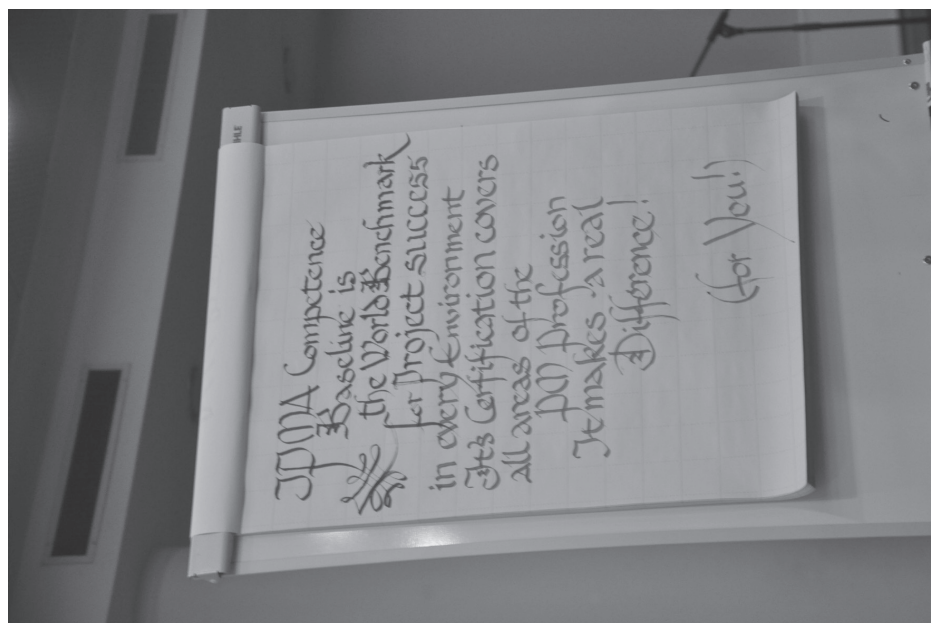 IPMA Competence
Baseline is
the World Benchmark
for Project success
in every Environment
It's Certification covers
All areas of the
PM Profession
It makes a real
Difference!
(for You!)